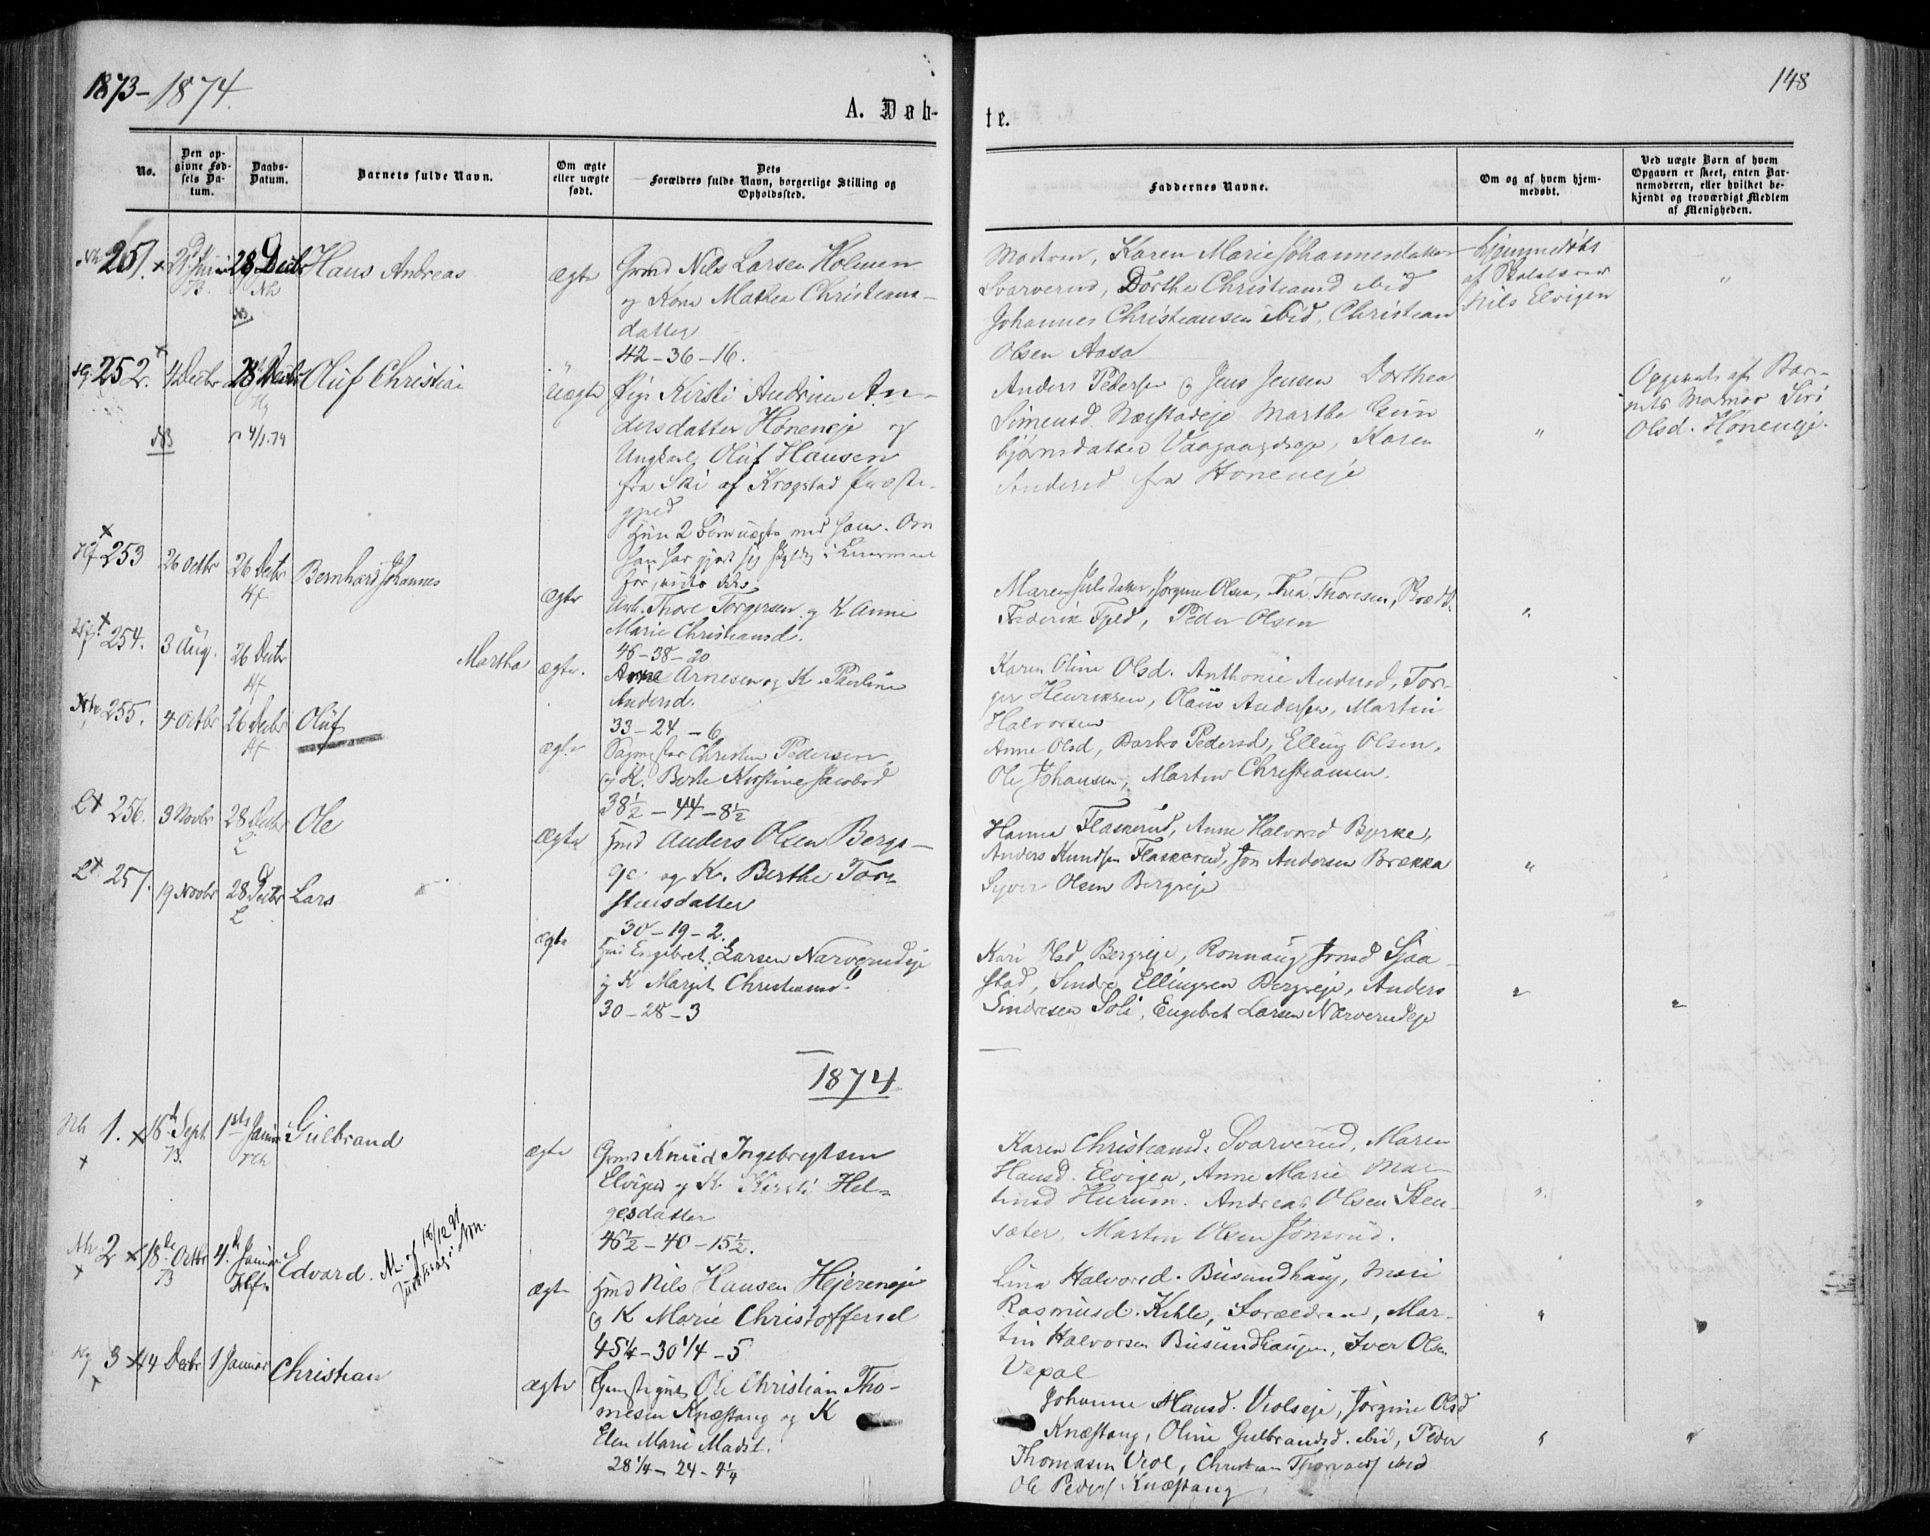 1873-1874.
148
A. Døb-
te.
No.
Den op-
givne Fød-
sels Da-
tum.
Daabs-
Datum.
Barnets fulde Navn.
Om ægte
eller uægte
født.
Dets
Forældres fulde Navn, borgerlige Stilling og
Opholdssted.
Faddernes Navne.
Om og af hvem hjem-
medøbt.
Ved uægte Børn af hvem
Opgaven er skeet, enten Bar-
nemoderen, eller hvilket be-
kjendt og troværdigt Medlem
af Menigheden.
251. 28 Decbr Hans Andreas
ægte
Nils Larsen Holmen
og Kone Mathea Christians-
datter
42-36-16.
Modren, Karen Marie Johannesdatter
Svarverud, Dorthe Christiansd ibid
Johannes Christiansen ibid, Christian
Olsen Aasa
hjemmedøbt
af
Nils Elvigen
252. 4 Decbr 28 Decbr Oluf Christian
4/1.74
NB
uægte
Pige Kirsti Andrine An-
dersdatter Høneneje og
Ungkarl Oluf Hansen
fra Ski af Krogstad Præste-
gjæld
Hun 2 Børn uægte med ham. Om
han har gjort sig skyldig i Leiermaal
før, vides ikke
Anders Pedersen og Jens Jensen Dorthea
Simensd. Næstadeje Marthe Gun
bjørnsdatter Karen
Andersd fra Høneneje
Opgivet af Bar-
nets Mormor Siri
Olsd. Høneneje.
253 26 Octbr 26 Decbr Bernhard Johannes
ægte
Arb. Thore Torgersen og K Anne
Marie Christiansd.
46-38-20
Maren Jørgine Olsen, Thea Thoresen,
Frederik Fjeld, Peder Olsen
254. 3 Aug. 26 Decbr Martha
ægte.
Arne Arnesen og K. Pauline
Andersd.
33-24-6
Karen Oline Olsd. Anthonie Andersd, Tor-
ger Henriksen, Olaus Andersen, Martin
Halvorsen
255. 4 Octbr 26 Decbr Oluf
ægte
Sagmester Christen Pedersen
og K. Berte Kirstine Jacobsd
38½-44-8½
Anne Olsd, Barbro Pedersd, Elling Olsen,
Ole Johansen, Martin Christiansen.
256. 3 Novbr 28 Decbr Ole
ægte
Hmd Anders Olsen Bergs-
eje og K. Berthe Tor-
stensdatter
30-19-2.
Hanna Flaskerud, Anne Halvorsd Byrke,
Anders Knudsen Flaskerud, Jon Andersen Brekka
Syver Olsen Bergseje
257. 19 Novbr 28 Decbr Lars
ægte
Hmd Engebret Larsen Narverudeje
og K Margit Christiansd.
30-28-3
Kari Olsd Bergseje, Rønnaug Jonsd Sjaa-
stad, Sindre Ellingsen Bergseje, Anders
Sindresen Soli, Engebret Larsen Narverudeje
1874
1. 16 Sept 73. 1ste Januar Gulbrand
ægte
Gmd Knud Ingebrigtsen
Elvigen og K. Kirsti Hel-
gesdatter
46½-40-15½.
Karen Christiansd. Svarverud, Maren
Hansd. Elvigen, Anne Marie Mar-
tinsd Hurum. Andreas Olsen Sten-
sæter, Martin Olsen Jonsrud.
2 18de Octbr 73 4de Januar Edvard.
18/12 91
ægte
Hmd Nils Hansen Hejereneje
og K Marie Christoffersd
45¼-30¼-5
Lina Halvorsd. Busundhaug, Mari
Rasmusd. Kihle, Forældrene, Mar-
tin Halvorsen Busundhaugen, Iver Olsen
Vexal
3 14 Decbr 1 Januar Christian
ægte
Ole Christian Tho-
mesen Knæstang og K
Elen Marie Madsd.
28¼-24-4¼
Johanne Hansd. Violseje, Jørgine Olsd
Knæstang, Oline Gulbrandsd. ibid, Peder
Thomasen Viol, Christian ibid
Ole Peders Knæstang